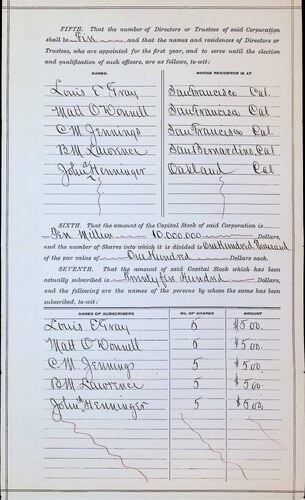 FIFTH. That the number of Directors or Trustees of said Corporation
shall be Five and that the names and residences of Directors or
Trustees, who are appointed for the first year, and to serve until the election
and qualification of such officers, are as follows, to-wit:
NAMES. WHOSE RESIDENCE IS AT
Louis E Gray San Francisco Cal.
Matt O'Donnell San Francisco Cal.
C M Jennings San Francisco Cal
B M Lawrence San Bernardino Cal
John Henninger Oakland Cal
SIXTH. That the amount of the Capital Stock of said Corporation is
Ten Million 10.000.000 Dollars,
and the number of Shares into which it is divided is One Hundred Thousand
of the par value of One Hundred Dollars each.
SEVENTH. That the amount of said Capital Stock which has been
actually subscribed is Twenty five Hundred Dollars,
and the following are the names of the persons by whom the same has been
subscribed, to-wit:
NAMES OF SUBSCRIBERS NO. OF SHARES AMOUNT
Louis E Gray 5 $500.
Matt O'Donnell 5 $500.
C M Jennings 5 $500.
B M Lawrence 5 $500.
John Henninger 5 $500.